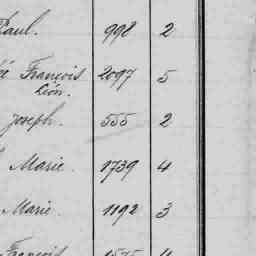 Paul. 998 2
François 2097 5
Léon.
Joseph. 555 2
Marie. 1739 4
Marie. 1192 3
François